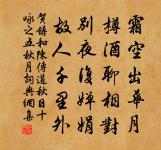 霜空出華月
樽酒聊相對
別夜復嬋娟
故人千里外
賀鑄和陳傳道秋日十
詠之五秋月詞典網集